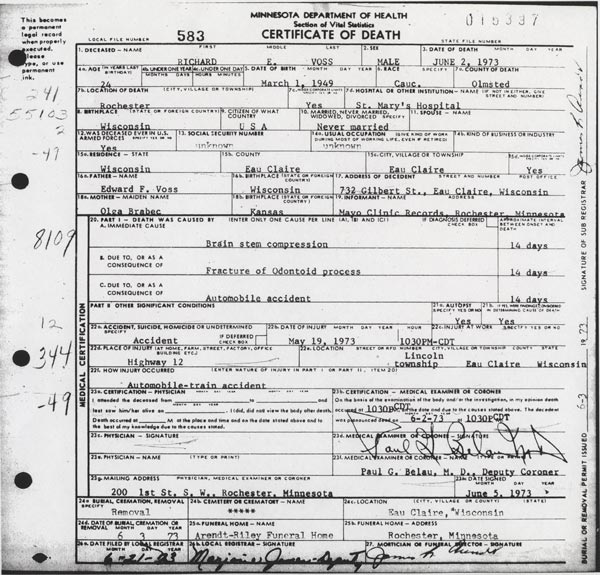 This becomes
a permanent
legal record
when properly
executed.
Please
type, or use
permanent
ink.
MINNESOTA DEPARTMENT OF HEALTH
Section of Vital Statistics
CERTIFICATE OF DEATH
LOCAL FILE NUMBER 583
STATE FILE NUMBER
1. DECEASED - NAME FIRST MIDDLE LAST 2. SEX 3. DATE OF DEATH MONTH DAY YEAR
RICHARD E. VOSS MALE JUNE 2, 1973
5. DATE OF BIRTH MONTH DAY YEAR 6. RACE SPECIFY 7a. COUNTY OF DEATH
24 March 1, 1949 Cauc. Olmsted
7b. LOCATION OF DEATH (CITY, VILLAGE OR TOWNSHIP)
7d. HOSPITAL OR OTHER INSTITUTION - NAME (IF NOT IN EITHER, GIVE STREET AND NUMBER)
Rochester Yes St. Mary's Hospital
8. BIRTHPLACE (STATE OR FOREIGN COUNTRY) 9. CITIZEN OF WHAT COUNTRY 10. MARRIED, NEVER MARRIED, WIDOWED, DIVORCED SPECIFY 11. SPOUSE - NAME
Wisconsin U S A Never married
12. WAS DECEASED EVER IN U.S. ARMED FORCES 13. SOCIAL SECURITY NUMBER 14a. USUAL OCCUPATION (GIVE KIND OF WORK DURING MOST OF WORKING LIFE, EVEN IF RETIRED) 14b. KIND OF BUSINESS OR INDUSTRY
Yes unknown unknown
15a. RESIDENCE - STATE 15b. COUNTY 15c. CITY, VILLAGE OR TOWNSHIP
Wisconsin Eau Claire Eau Claire Yes
16a. FATHER - NAME 16b. BIRTHPLACE (STATE OR FOREIGN COUNTRY) 17. ADDRESS OF DECEDENT STREET AND NUMBER POST OFFICE
Edward F. Voss Wisconsin 732 Gilbert St., Eau Claire, Wisconsin
18a. MOTHER - MAIDEN NAME 18b. BIRTHPLACE (STATE OR FOREIGN COUNTRY) 19. INFORMANT - NAME ADDRESS
Olga Brabec Kansas Mayo Clinic Records, Rochester, Minnesota
20. PART I - DEATH WAS CAUSED BY (ENTER ONLY ONE CAUSE PER LINE (A), (B) AND (C)) IF DIAGNOSIS DEFERRED CHECK BOX APPROXIMATE INTERVAL BETWEEN ONSET AND DEATH
A. IMMEDIATE CAUSE
Brain stem compression 14 days
B. DUE TO, OR AS A CONSEQUENCE OF
Fracture of Odontoid process 14 days
C. DUE TO, OR AS A CONSEQUENCE OF
Automobile accident 14 days
PART II OTHER SIGNIFICANT CONDITIONS 21a. AUTOPSY
Yes Yes
22a. ACCIDENT, SUICIDE, HOMICIDE OR UNDETERMINED (SPECIFY) IF DEFERRED CHECK BOX 22b. DATE OF INJURY MONTH DAY YEAR HOUR 22c. INJURY AT WORK (SPECIFY YES OR NO)
Accident May 19, 1973 1030PM-CDT
22d. PLACE OF INJURY (AT HOME, FARM, STREET, FACTORY, OFFICE BUILDING ETC.) 22e. LOCATION STREET OR RFD NUMBER CITY, VILLAGE OR TOWNSHIP COUNTY STATE
Highway 12 Lincoln township Eau Claire Wisconsin
22f. HOW INJURY OCCURRED (ENTER NATURE OF INJURY IN PART I OR PART II, ITEM 20)
Automobile-train accident
23a. CERTIFICATION - PHYSICIAN MONTH DAY YEAR
I attended the deceased from to and
last saw him/her alive on I (did, did not) view the body after death.
Death occurred at M at the place and time and on the date stated above and to
the best of my knowledge due to the causes stated.
23b. CERTIFICATION - MEDICAL EXAMINER OR CORONER
On the basis of the examination of the body and/or the investigation, in my opinion death
occurred at 1030PCDT on the date and due to the causes stated above. The decedent
was pronounced dead on 6-2-73 at 1030PCDT
23c. PHYSICIAN - SIGNATURE 23d. MEDICAL EXAMINER OR CORONER - SIGNATURE
23e. PHYSICIAN - NAME 23f. MEDICAL EXAMINER OR CORONER - NAME
Paul G. Belau, M. D., Deputy Coroner
23g. MAILING ADDRESS PHYSICIAN, MEDICAL EXAMINER OR CORONER 23h. DATE SIGNED MONTH DAY YEAR
200 1st St. S. W., Rochester, Minnesota June 5, 1973
24a. BURIAL, CREMATION, REMOVAL (SPECIFY) 24b. CEMETERY OR CREMATORY - NAME 24c. LOCATION (CITY, VILLAGE OR COUNTY) (STATE)
Removal ***** Eau Claire, Wisconsin
24d. DATE OF BURIAL, CREMATION OR REMOVAL MONTH DAY YEAR 25a. FUNERAL HOME - NAME 25b. FUNERAL HOME - ADDRESS
6 3 73 Arendt-Riley Funeral Home Rochester, Minnesota
26a. DATE FILED BY LOCAL REGISTRAR 27. MORTICIAN OR FUNERAL DIRECTOR - SIGNATURE
MEDICAL CERTIFICATION
SIGNATURE OF SUB REGISTRAR
BURIAL OR REMOVAL PERMIT ISSUED 6-3 19 73
241
55103
2
49
8109
12
344
-49